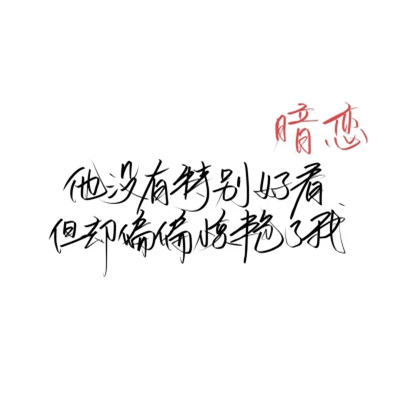 暗恋
他没有特别好看
但却偏偏惊艳了我